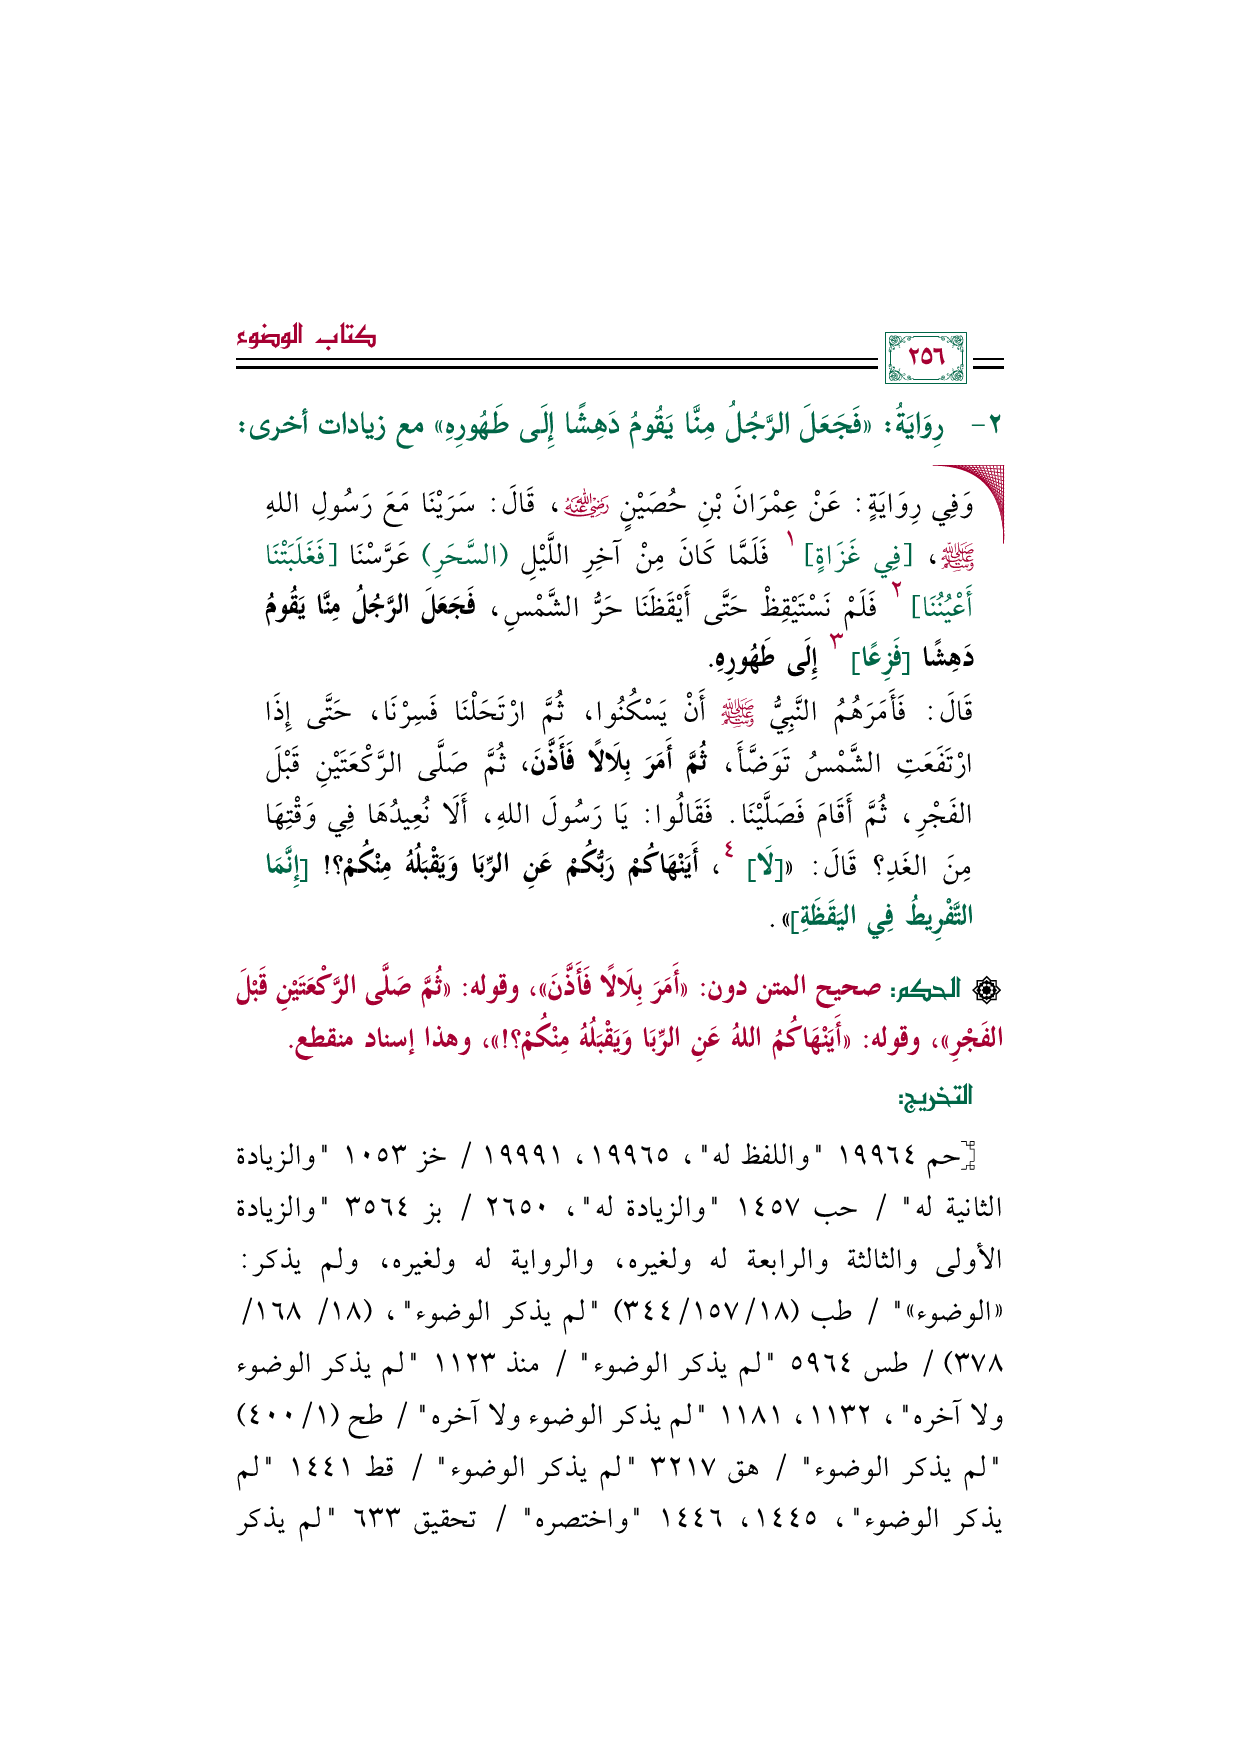 كتاب الوضوء
٢٥٦
٢- رِوَايَةُ: «فَجَعَلَ الرَّجُلُ مِنَّا يَقُومُ دَهِشًا إِلَى طَهُورِهِ» مع زيادات أخرى:
وَفِي رِوَايَةٍ: عَنْ عِمْرَانَ بْنِ حُصَيْنٍ رضي الله عنه، قَالَ: سَرَيْنَا مَعَ رَسُولِ اللهِ
ﷺ، [فِي غَزَاةٍ] ١ فَلَمَّا كَانَ مِنْ آخِرِ اللَّيْلِ (السَّحَرِ) عَرَّسْنَا [فَغَلَبَتْنَا
أَعْيُنُنَا] ٢ فَلَمْ نَسْتَيْقِظْ حَتَّى أَيْقَظَنَا حَرُّ الشَّمْسِ، فَجَعَلَ الرَّجُلُ مِنَّا يَقُومُ
دَهِشًا [فَزِعًا] ٣ إِلَى طَهُورِهِ.
قَالَ: فَأَمَرَهُمُ النَّبِيُّ ﷺ أَنْ يَسْكُنُوا، ثُمَّ ارْتَحَلْنَا فَسِرْنَا، حَتَّى إِذَا
ارْتَفَعَتِ الشَّمْسُ تَوَضَّأَ، ثُمَّ أَمَرَ بِلَالًا فَأَذَّنَ، ثُمَّ صَلَّى الرَّكْعَتَيْنِ قَبْلَ
الفَجْرِ، ثُمَّ أَقَامَ فَصَلَّيْنَا. فَقَالُوا: يَا رَسُولَ اللهِ، أَلَا نُعِيدُهَا فِي وَقْتِهَا
مِنَ الغَدِ؟ قَالَ: «[لَا] ٤، أَيَنْهَاكُمْ رَبُّكُمْ عَنِ الرِّبَا وَيَقْبَلُهُ مِنْكُمْ؟! [إِنَّمَا
التَّفْرِيطُ فِي اليَقَظَةِ]».
الحكم: صحيح المتن دون: «أَمَرَ بِلَالًا فَأَذَّنَ»، وقوله: «ثُمَّ صَلَّى الرَّكْعَتَيْنِ قَبْلَ
الفَجْرِ»، وقوله: «أَيَنْهَاكُمُ اللهُ عَنِ الرِّبَا وَيَقْبَلُهُ مِنْكُمْ؟!»، وهذا إسناد منقطع.
التخريج:
[حم ١٩٩٦٤ "واللفظ له"، ١٩٩٦٥، ١٩٩٩١ / خز ١٠٥٣ "والزيادة
الثانية له" / حب ١٤٥٧ "والزيادة له"، ٢٦٥٠ / بز ٣٥٦٤ "والزيادة
الأولى والثالثة والرابعة له ولغيره، والرواية له ولغيره، ولم يذكر:
«الوضوء»" / طب (١٨/١٥٧/٣٤٤) "لم يذكر الوضوء"، (١٨/ ١٦٨/
٣٧٨) / طس ٥٩٦٤ "لم يذكر الوضوء" / منذ ١١٢٣ "لم يذكر الوضوء
ولا آخره"، ١١٣٢، ١١٨١ "لم يذكر الوضوء ولا آخره" / طح (١/٤٠٠)
"لم يذكر الوضوء" / هق ٣٢١٧ "لم يذكر الوضوء" / قط ١٤٤١ "لم
يذكر الوضوء"، ١٤٤٥، ١٤٤٦ "واختصره" / تحقيق ٦٣٣ "لم يذكر